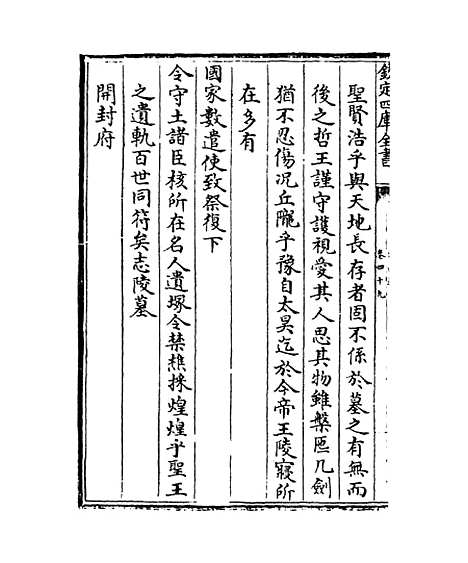 欽定四庫全書
卷四十九
聖賢浩乎與天地長存者固不係於墓之有無而
後之哲王謹守護視愛其人思其物雖槃匜几劍
猶不忍傷况丘隴乎豫自太昊迄於今帝王陵寢所
在多有
國家數遣使致祭復下
令守土諸臣核所在名人遺塚令禁樵採煌煌乎聖王
之遺軌百世同符矣志陵墓
開封府